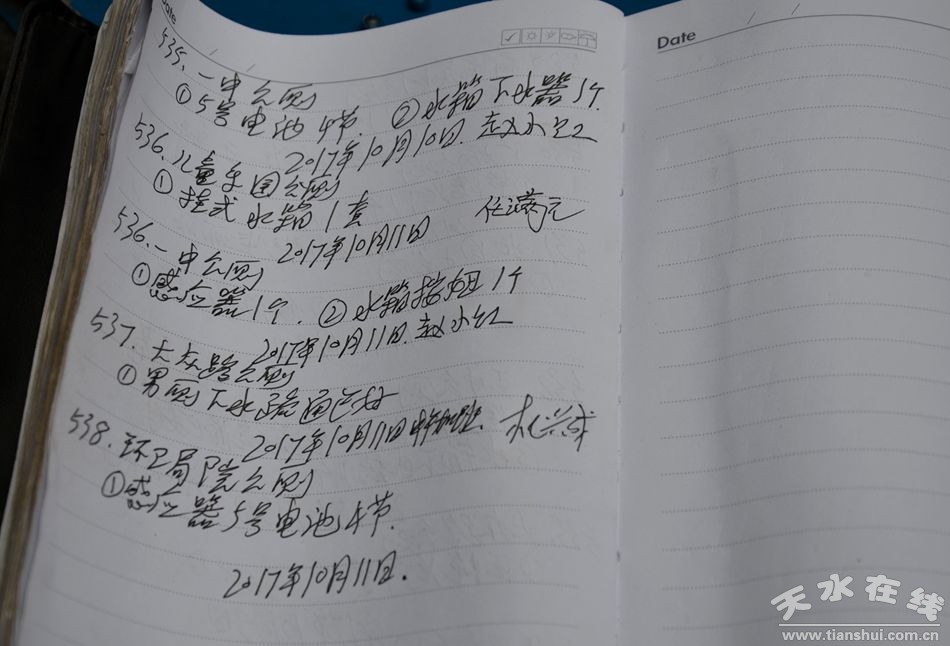 Date
535. 一中公厕
①5号电池4节. ②水箱下水器1个.
2017年10月10日. 赵小红
536. 儿童乐园公厕
①挂式水箱1套
2017年10月11日 任满元
536. 一中公厕
①感应器1个. ②水箱按钮1个
2017年10月11日. 赵小红
537. 大众路公厕
①男厕下水疏通
2017年10月11日中午加班.
538. 环卫局院公厕
①感应器5号电池4节.
2017年10月11日.
Date
天水在线
www.tianshui.com.cn